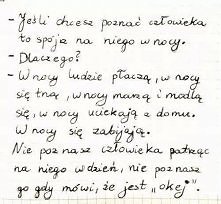 - Jeśli chcesz poznać człowieka
to spójrz na niego w nocy.
- Dlaczego?
- W nocy ludzie płaczą, w nocy
się tną, w nocy marzą i modlą
się, w nocy uciekają z domu.
W nocy się zabijają.
Nie poznasz człowieka patrząc
na niego w dzień, nie poznasz
go gdy mówi, że jest "okej".